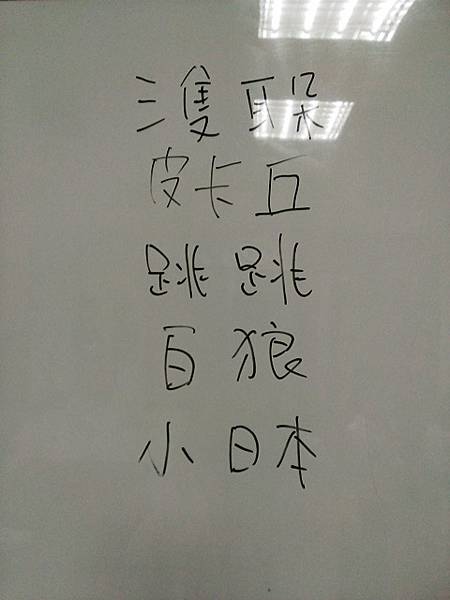 三隻耳朵
皮卡丘
跳跳
百狼
小日本